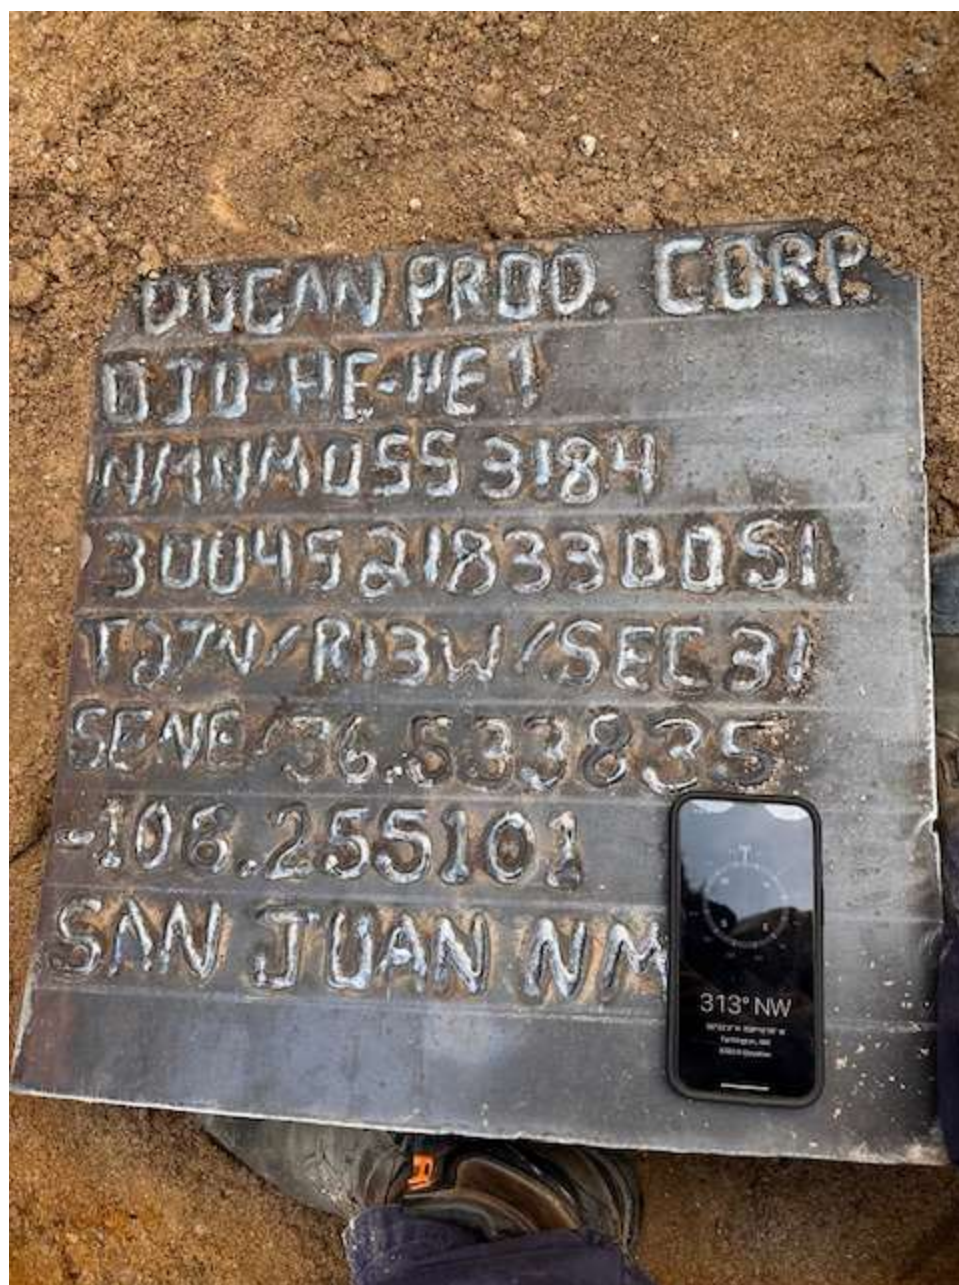 DUGAN PROD. CORP.
OJO-HE-HE 1
NMNM055 3184
30045218330051
T27N/R13W/SEC 31
SENE/36.533835
-108.255101
SAN JUAN NM
313° NW
Farmington, NM